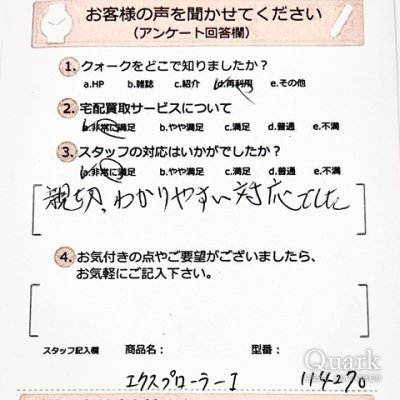 お客様の声を聞かせてください
(アンケート回答欄)
1. クォークをどこで知りましたか?
a.HP b.雑誌 c.紹介 d.再利用 e.その他
2. 宅配買取サービスについて
a.非常に満足 b.やや満足 c.満足 d.普通 e.不満
3. スタッフの対応はいかがでしたか?
a.非常に満足 b.やや満足 c.満足 d.普通 e.不満
親切、わかりやすい対応でした
4. お気付きの点やご要望がございましたら、
お気軽にご記入下さい。
スタッフ記入欄 商品名: 型番:
エクスプローラーI 114270
Quark